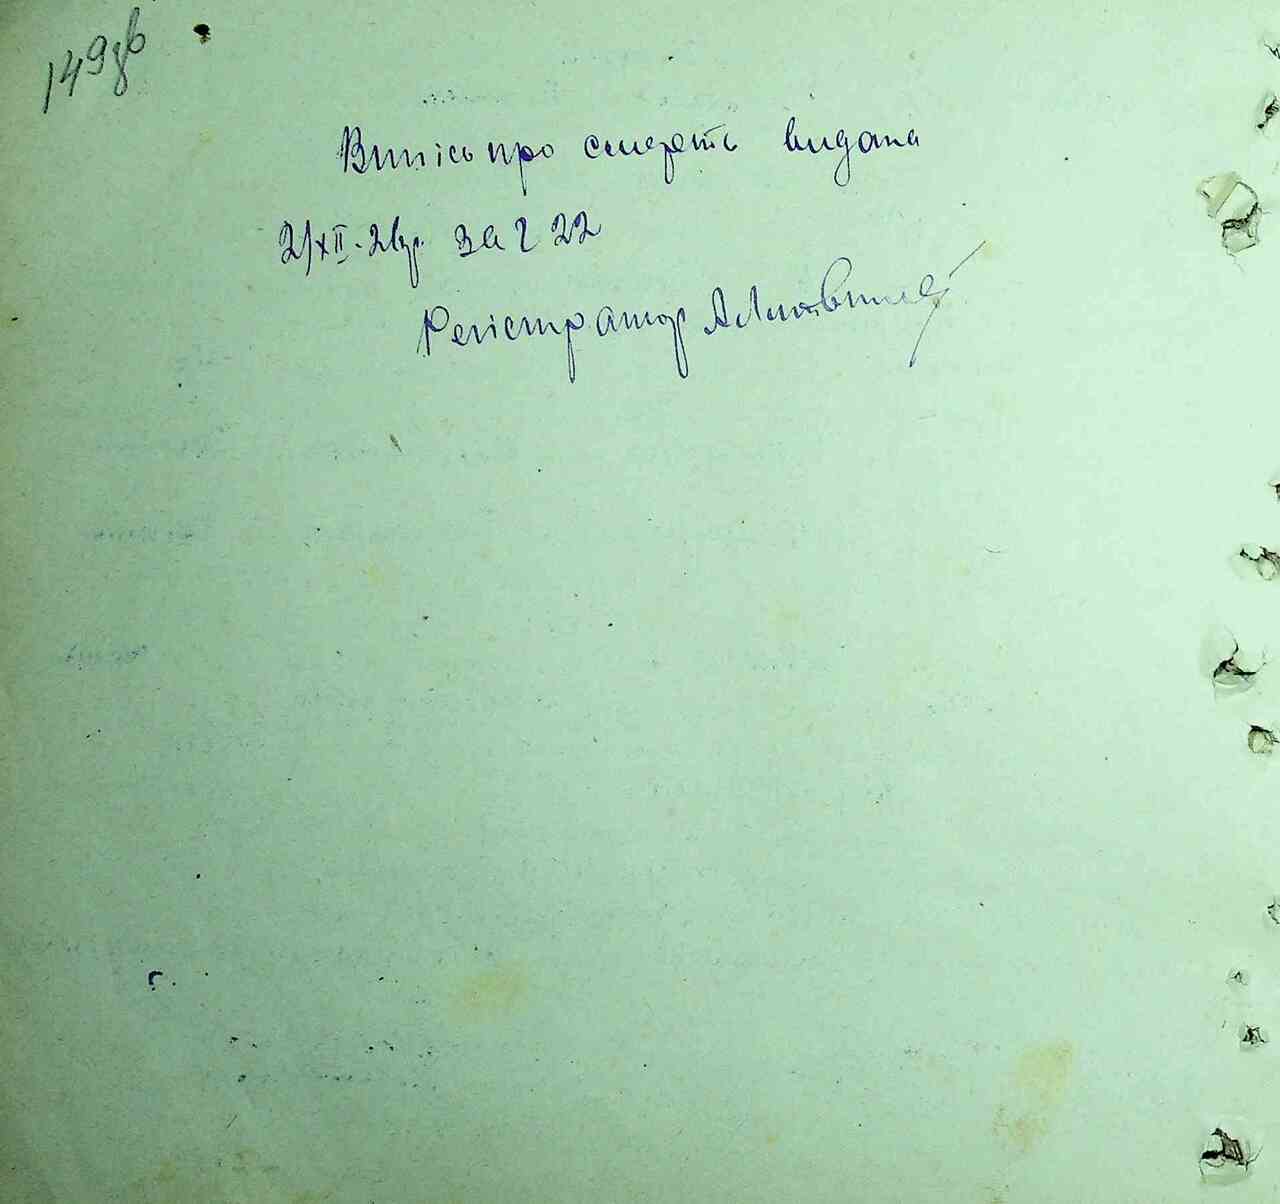 149зв
Випісь про смерть видана
2/XII-26р. за ч 22
Регістратор